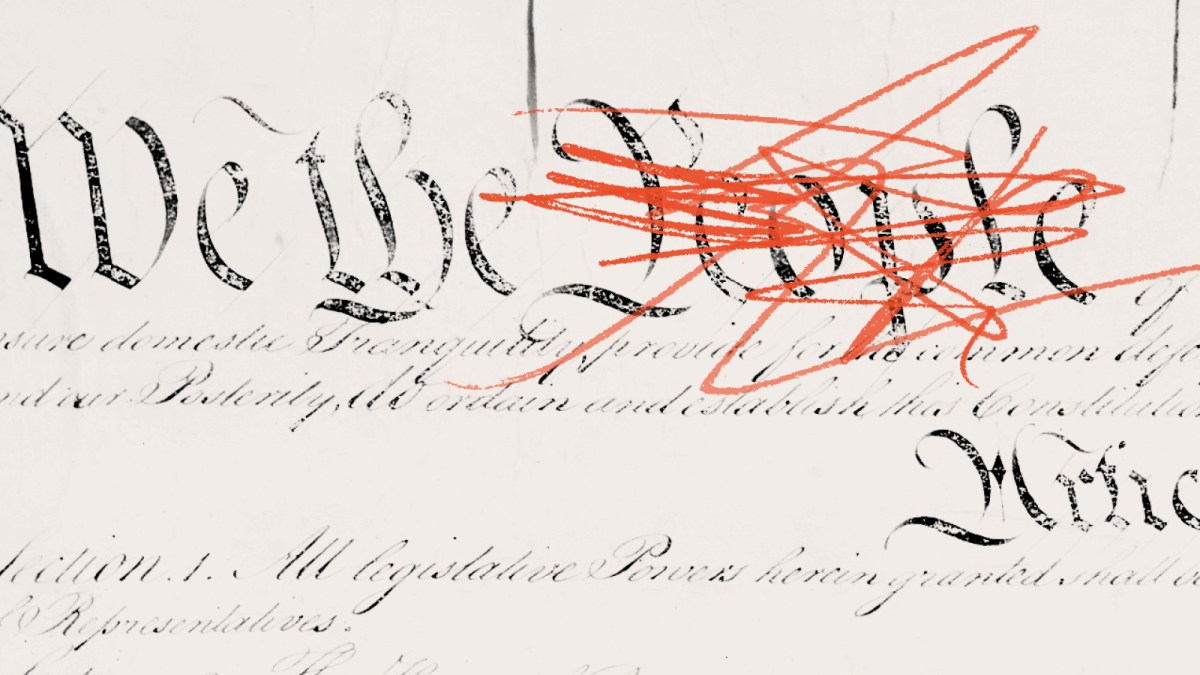 We the People of
sure domestic Tranquility, provide for the common defe
nd our Posterity, do ordain and establish this Constitution
Artic
Section. 1. All legislative Powers herein granted shall
Representatives.